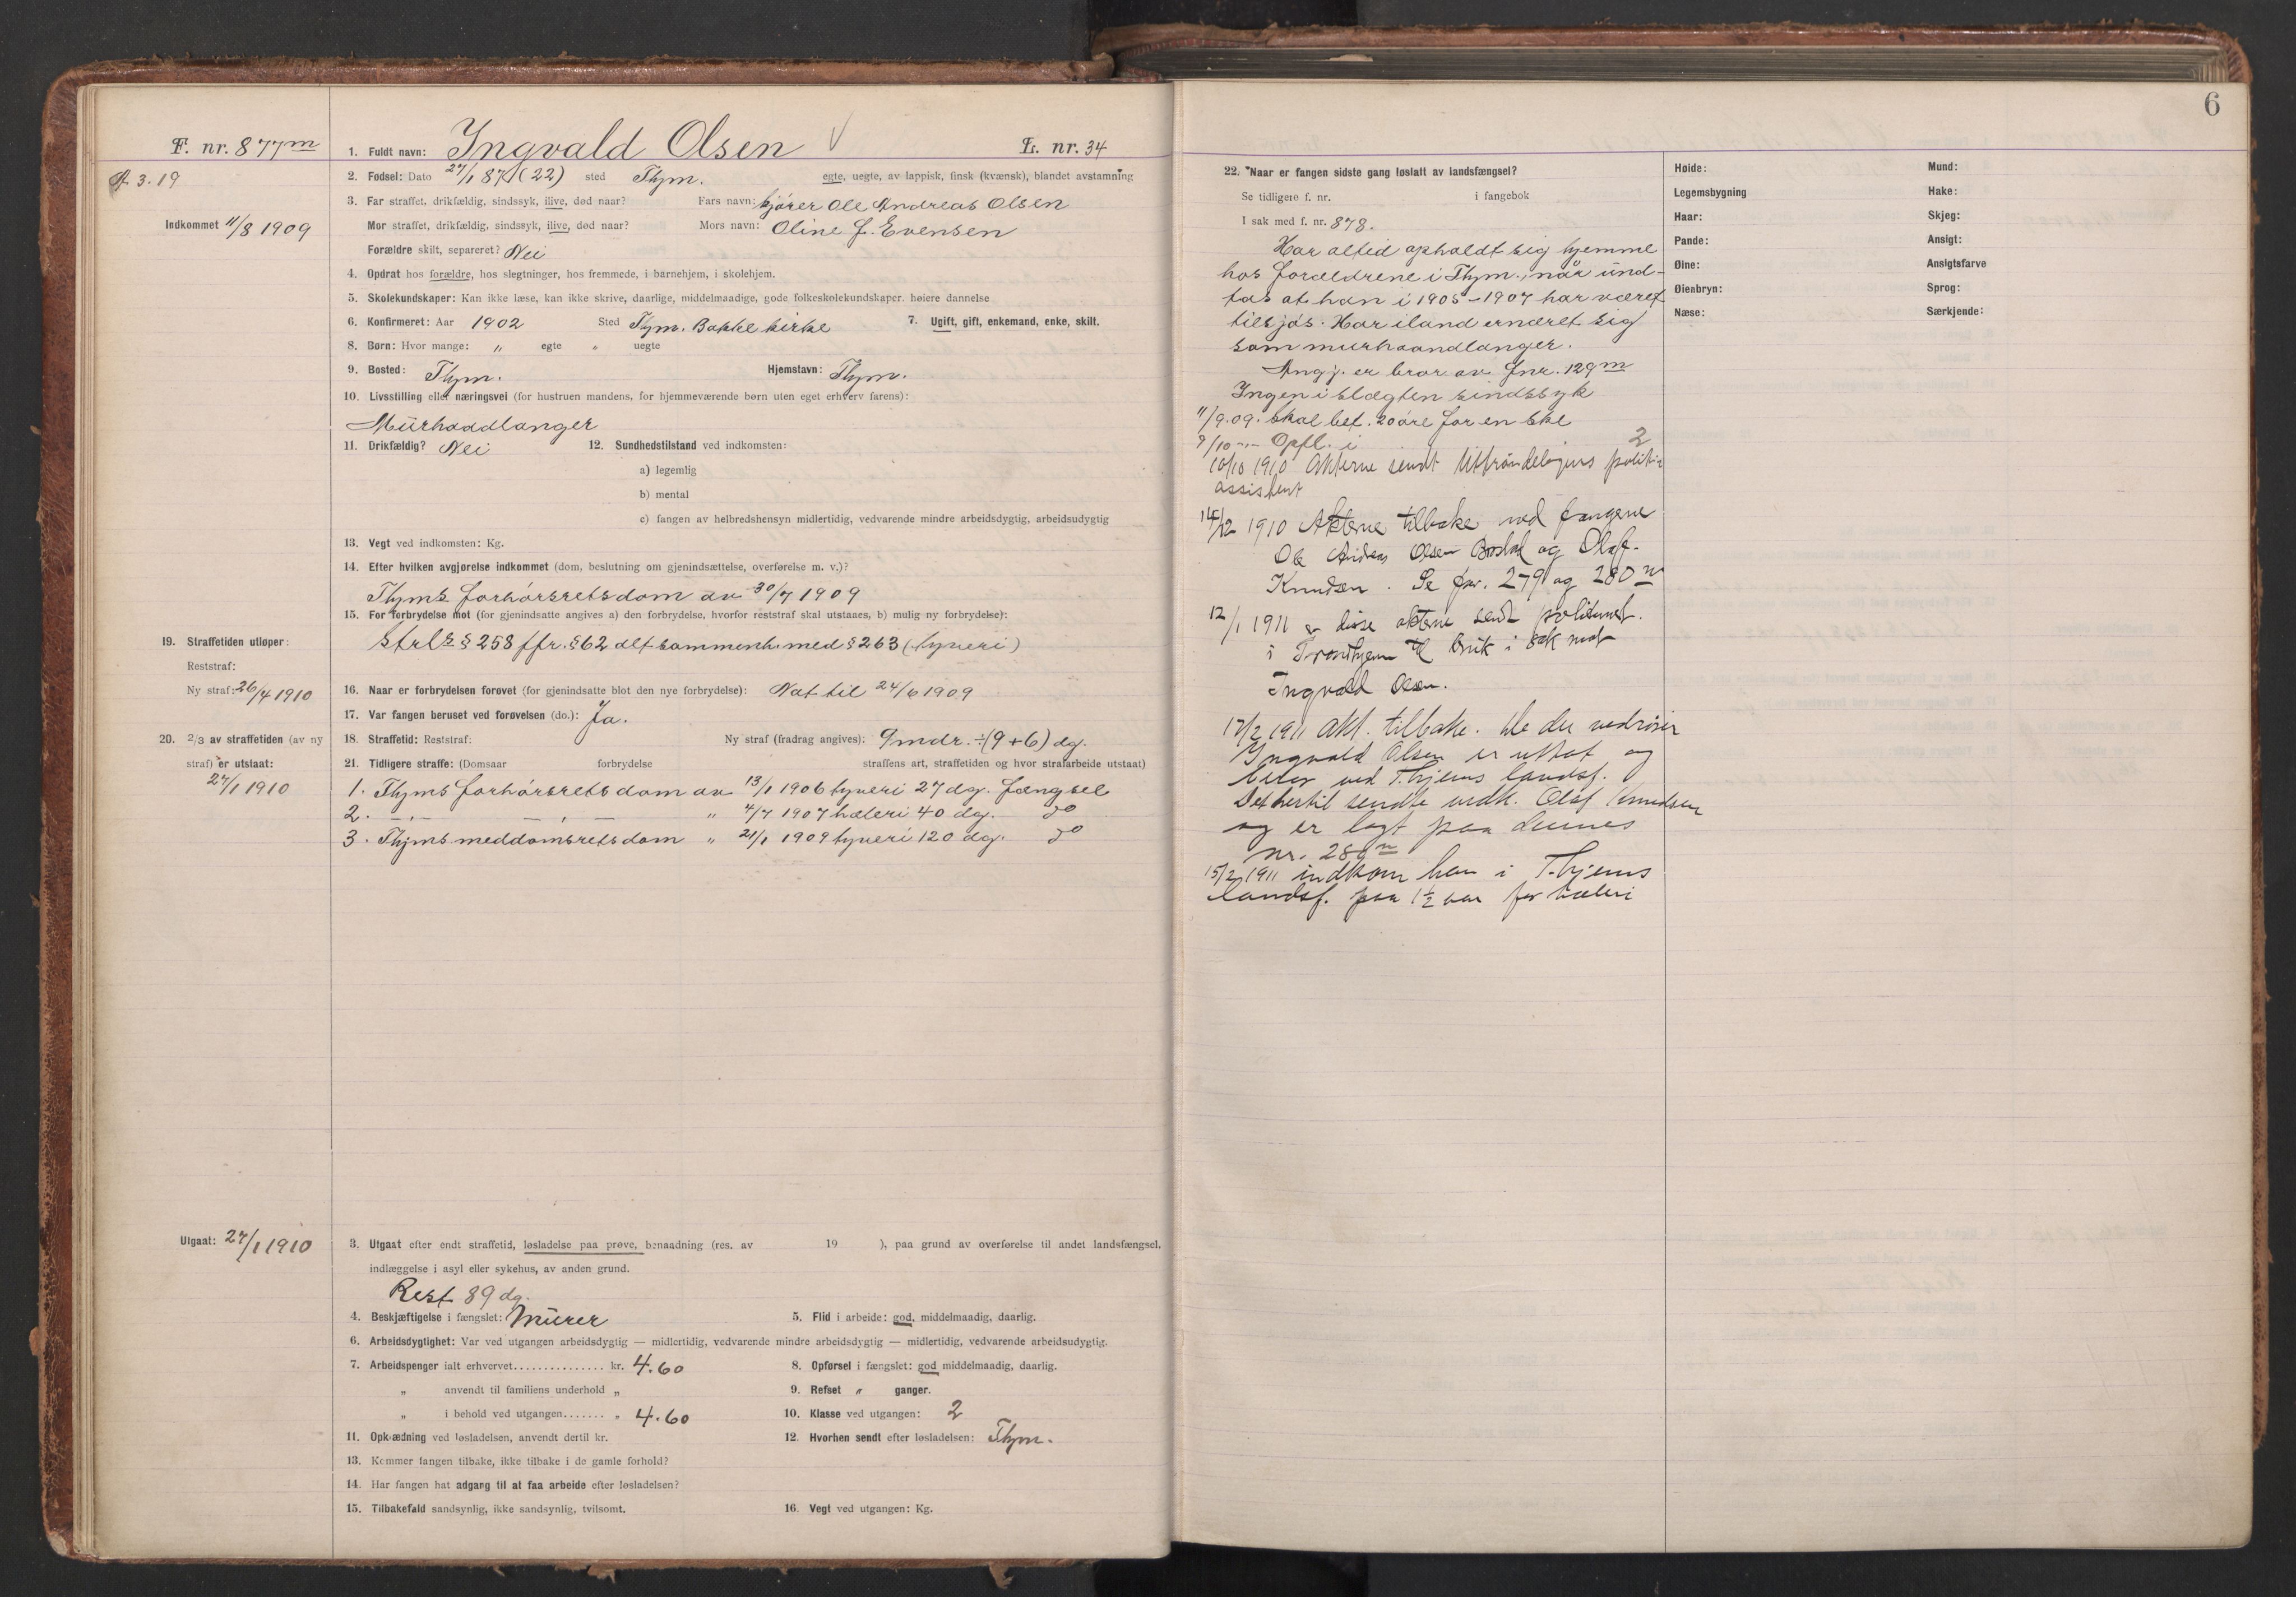 6
F. nr. 877m
1. Fuldt navn: Ingvald Olsen V
L. nr. 34
A 3.19
2. Fødsel: Dato 27/1 87 (22) sted Thjm. egte, uegte, av lappisk, finsk (kvænsk), blandet avstamning
3. Far straffet, drikfældig, sindssyk, ilive, død naar? Fars navn: kjører Ole Andreas Olsen
Indkommet 11/8 1909
Mor straffet, drikfældig, sindssyk, ilive, død naar? Mors navn: Oline J. Evensen
Forældre skilt, separeret? Nei
4. Opdrat hos forældre, hos slegtninger, hos fremmede, i barnehjem, i skolehjem.
5. Skolekundskaper: Kan ikke læse, kan ikke skrive, daarlige, middelmaadige, gode folkeskolekundskaper. høiere dannelse
6. Konfirmeret: Aar 1902 Sted Thjm. Bakke kirke 7. Ugift, gift, enkemand, enke, skilt.
8. Børn: Hvor mange: " egte " uegte
9. Bosted: Thjm. Hjemstavn: Thjm.
10. Livsstilling eller næringsvei (for hustruen mandens, for hjemmeværende børn uten eget erhverv farens):
Mürhaadlanger
11. Drikfældig? Nei 12. Sundhedstilstand ved indkomsten:
a) legemlig
b) mental
c) fangen av helbredshensyn midlertidig, vedvarende mindre arbeidsdygtig, arbeidsudygtig
13. Vegt ved indkomsten: Kg.
14. Efter hvilken avgjørelse indkommet (dom, beslutning om gjenindsættelse, overførelse m. v.)?
Thjms forhørsretsdom av 30/7 1909
15. For forbrydelse mot (for gjenindsatte angives a) den forbrydelse, hvorfor reststraf skal utstaaes, b) mulig ny forbrydelse):
19. Straffetiden utløper:
Strl §§ 258 ffr. § 62 alt sammenh. med § 263 (tyveri)
Reststraf:
Ny straf: 26/4 1910
16. Naar er forbrydelsen forøvet (for gjenindsatte blot den nye forbrydelse): Nat til 24/6 1909
17. Var fangen beruset ved forøvelsen (do.): Ja.
20. 2/3 av straffetiden (av ny
18. Straffetid: Reststraf: Ny straf (fradrag angives): 9 mdr. ÷ (9+6) dg.
straf) er utstaat:
21. Tidligere straffe: (Domsaar forbrydelse straffens art, straffetiden og hvor strafarbeide utstaat)
27/1 1910
1. Thjms forhørsrets dom av 13/1 1906 tyveri 27 dg. Fængsel
2. -"- -"- " 4/7 1907 hæleri 40 dg. do
3. Thjms meddomsrets dom " 21/1 1909 tyveri 120 dg. do
Utgaat: 27/1 1910
3. Utgaat efter endt straffetid, løsladelse paa prøve, benaadning (res. av 19 ), paa grund av overførelse til andet landsfængsel,
indlæggelse i asyl eller sykehus, av anden grund.
Rest 89 dg.
4. Beskjæftigelse i fængslet: Mürer 5. Flid i arbeide: god, middelmaadig, daarlig.
6. Arbeidsdygtighet: Var ved utgangen arbeidsdygtig — midlertidig, vedvarende mindre arbeidsdygtig — midlertidig, vedvarende arbeidsudygtig.
7. Arbeidspenger ialt erhvervet............... kr. 4.60 8. Opførsel i fængslet: god middelmaadig, daarlig.
" anvendt til familiens underhold " 9. Refset " ganger.
" i behold ved utgangen....... " 4.60 10. Klasse ved utgangen: 2
11. Opklædning ved løsladelsen, anvendt dertil kr. 12. Hvorhen sendt efter løsladelsen: Thjm.
13. Kommer fangen tilbake, ikke tilbake i de gamle forhold?
14. Har fangen hat adgang til at faa arbeide efter løsladelsen?
15. Tilbakefald sandsynlig, ikke sandsynlig, tvilsomt. 16. Vegt ved utgangen: Kg.
22. Naar er fangen sidste gang løslatt av landsfængsel?
Se tidligere f. nr. i fangebok
I sak med f. nr. 878.
Har altid opholdt sig hjemme
hos forældrene i Thjm., når ünd-
tas at han i 1905–1907 har været
tilsjøs. Har iland ernæret sig
som murhaandlanger.
Angj. er bror av fnr. 129m
Ingen i slægten sindssyk
11/9.09. skal bet. 20 øre for en skl
9/10 -"- Opfl. i 2
10/10 1910 Akterne sendt Uttrøndelagens politi-
assistent
14/12 1910 Akterne tilbake ved fangene
Ole Andreas Olsen og Olaf
Knudsen. Se fnr. 279 og 280 n
12/1 1911 er disse akterne sendt politimest.
i Trondhjem til bruk i sak mot
Ingvald Olsen.
17/2 1911 akt. tilbake. De der vedrører
Ingvald Olsen er uttat og
beror ved T.hjems landsf.
Det hertil sendte vedk. Olaf Knudsen
og er lagt paa dennes
nr. 280 n
15/2 1911 indkom han i T.hjems
landsf. paa 1½ aar for hæleri
Høide:
Legemsbygning
Haar:
Pande:
Øine:
Øienbryn:
Næse:
Mund:
Hake:
Skjeg:
Ansigt:
Ansigtsfarve
Sprog:
Særkjende: